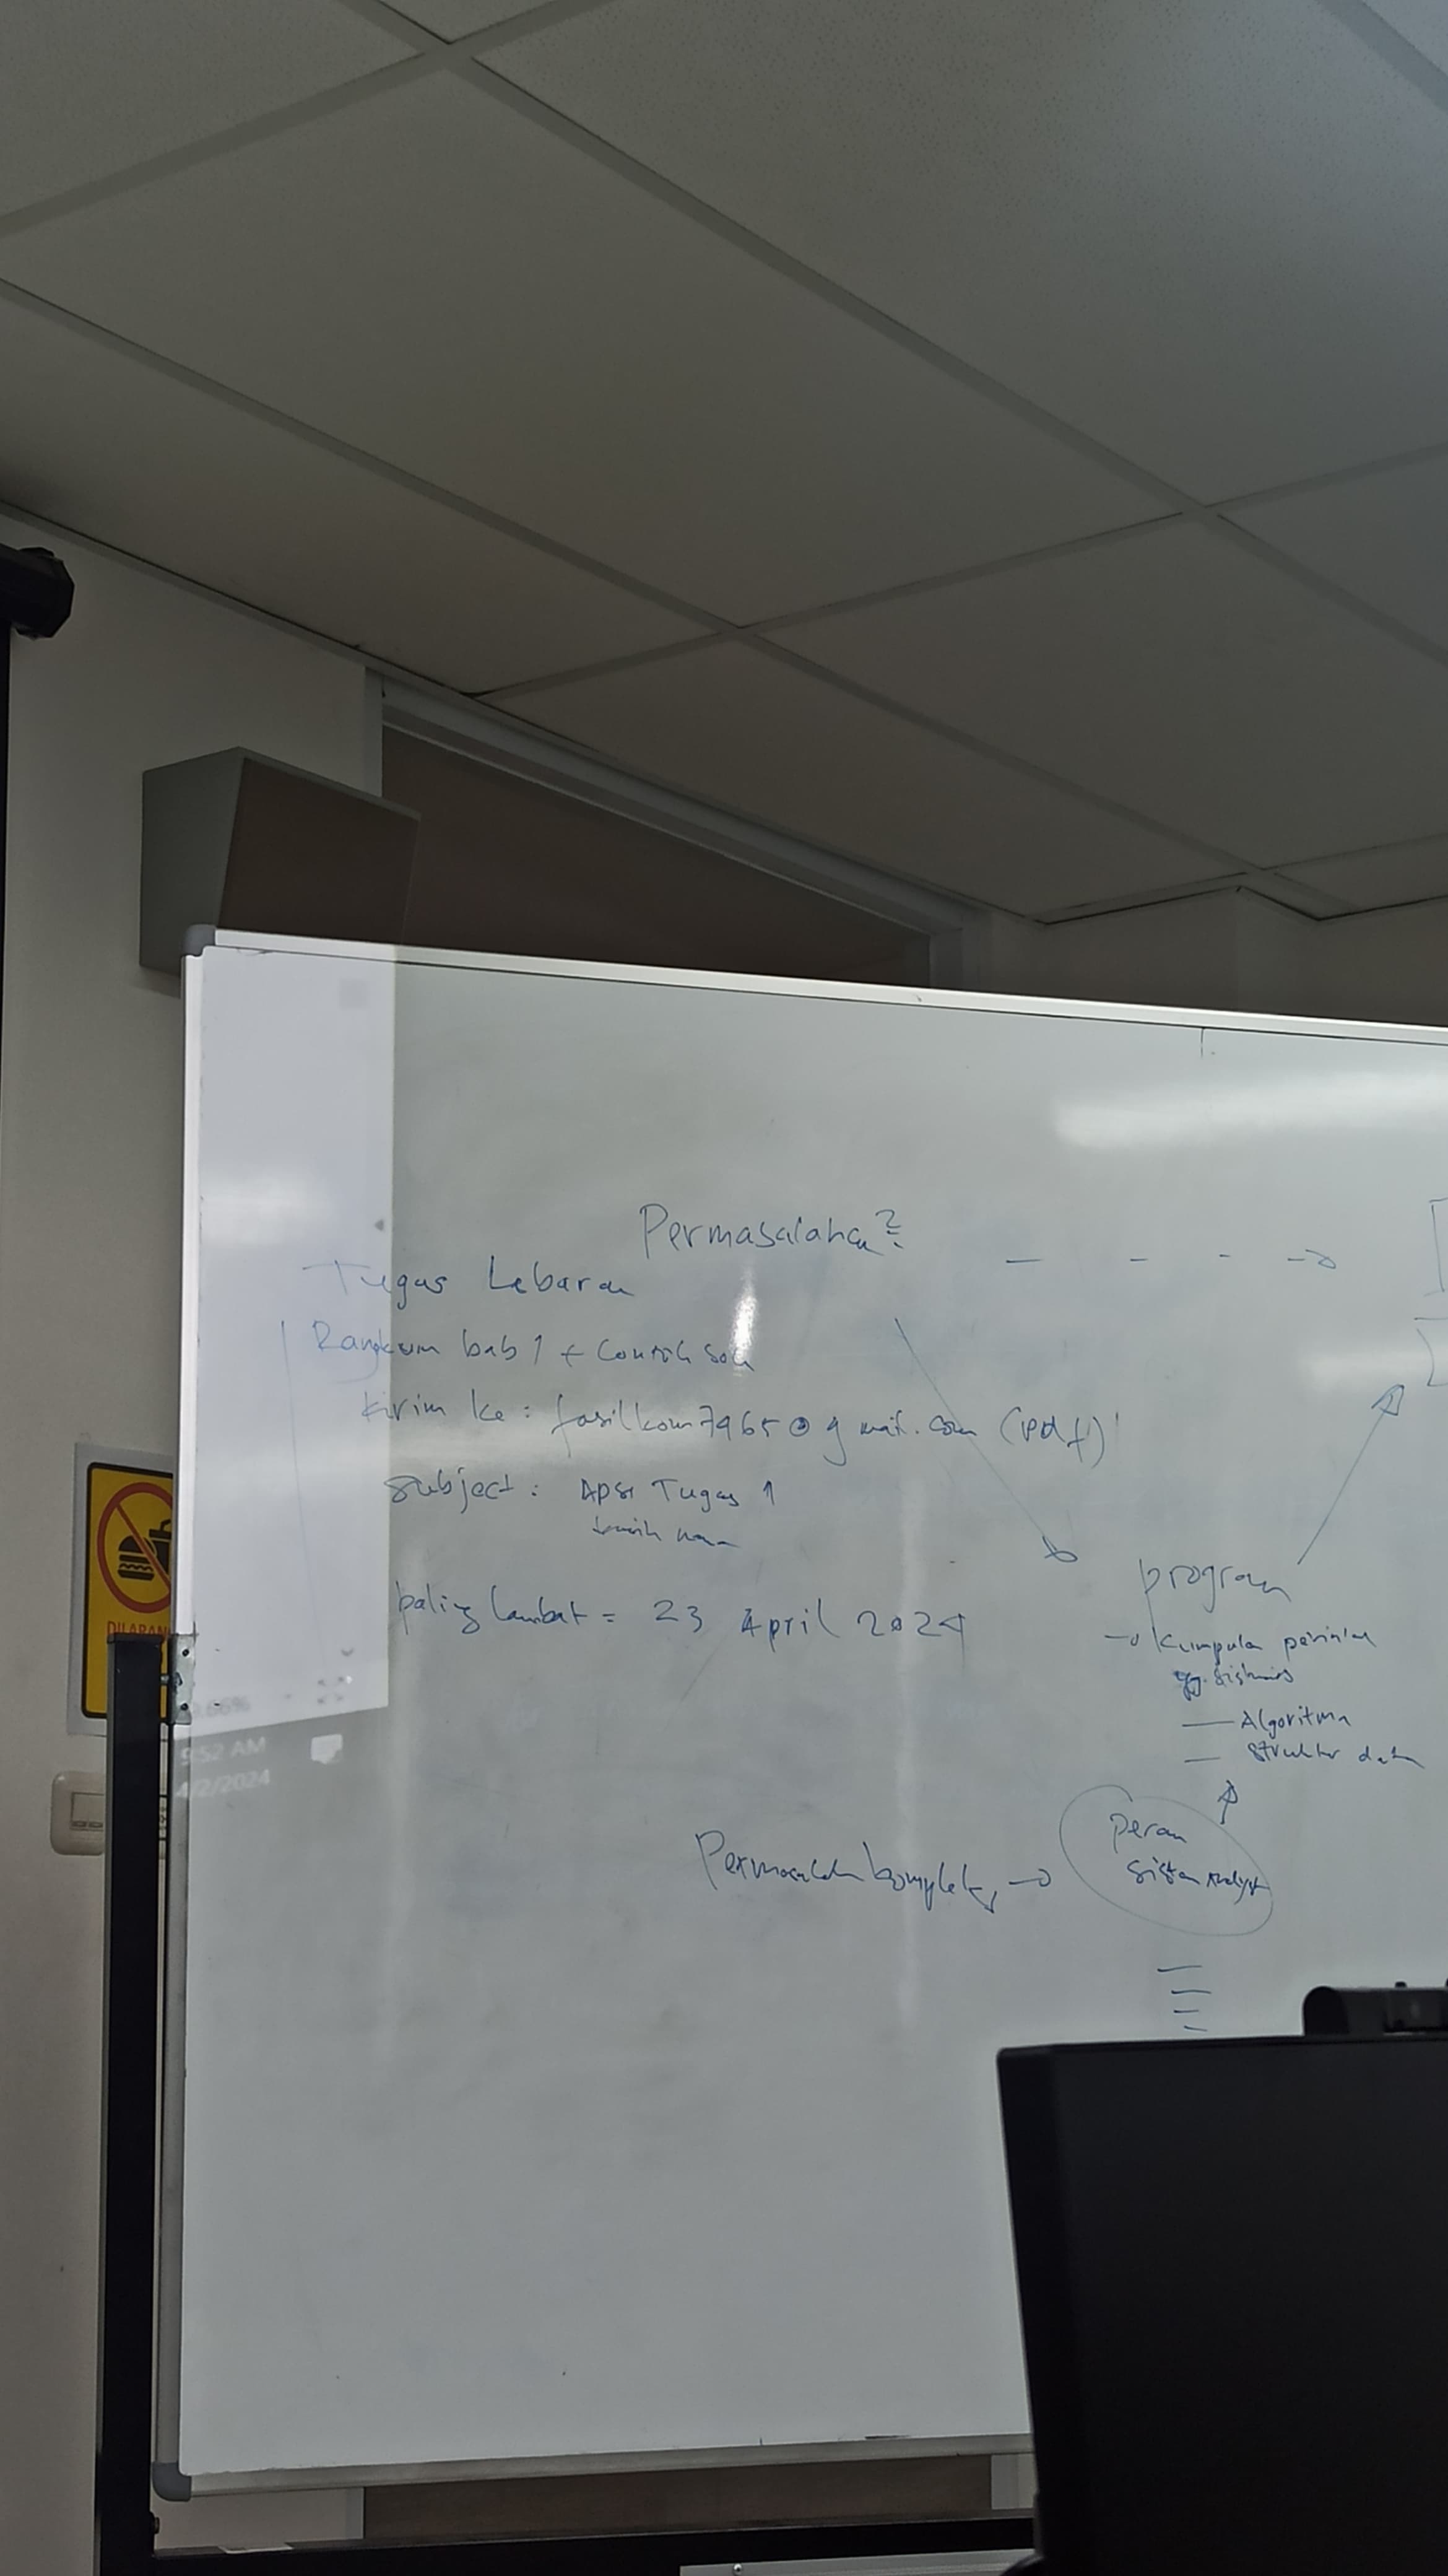 Permasalahan?
Tugas Lebaran
Rangkum bab 1 + Contoh Soal
Kirim ke : fasilkom7965@gmail.com (pdf)
Subject : Apsi Tugas 1
paling lambat = 23 April 2024
program
Kumpulan perintah
yg. sistimatis
Algoritma
Struktur data
peran
Permasalahan kompleks
DILARANG
9:52 AM
4/2/2024